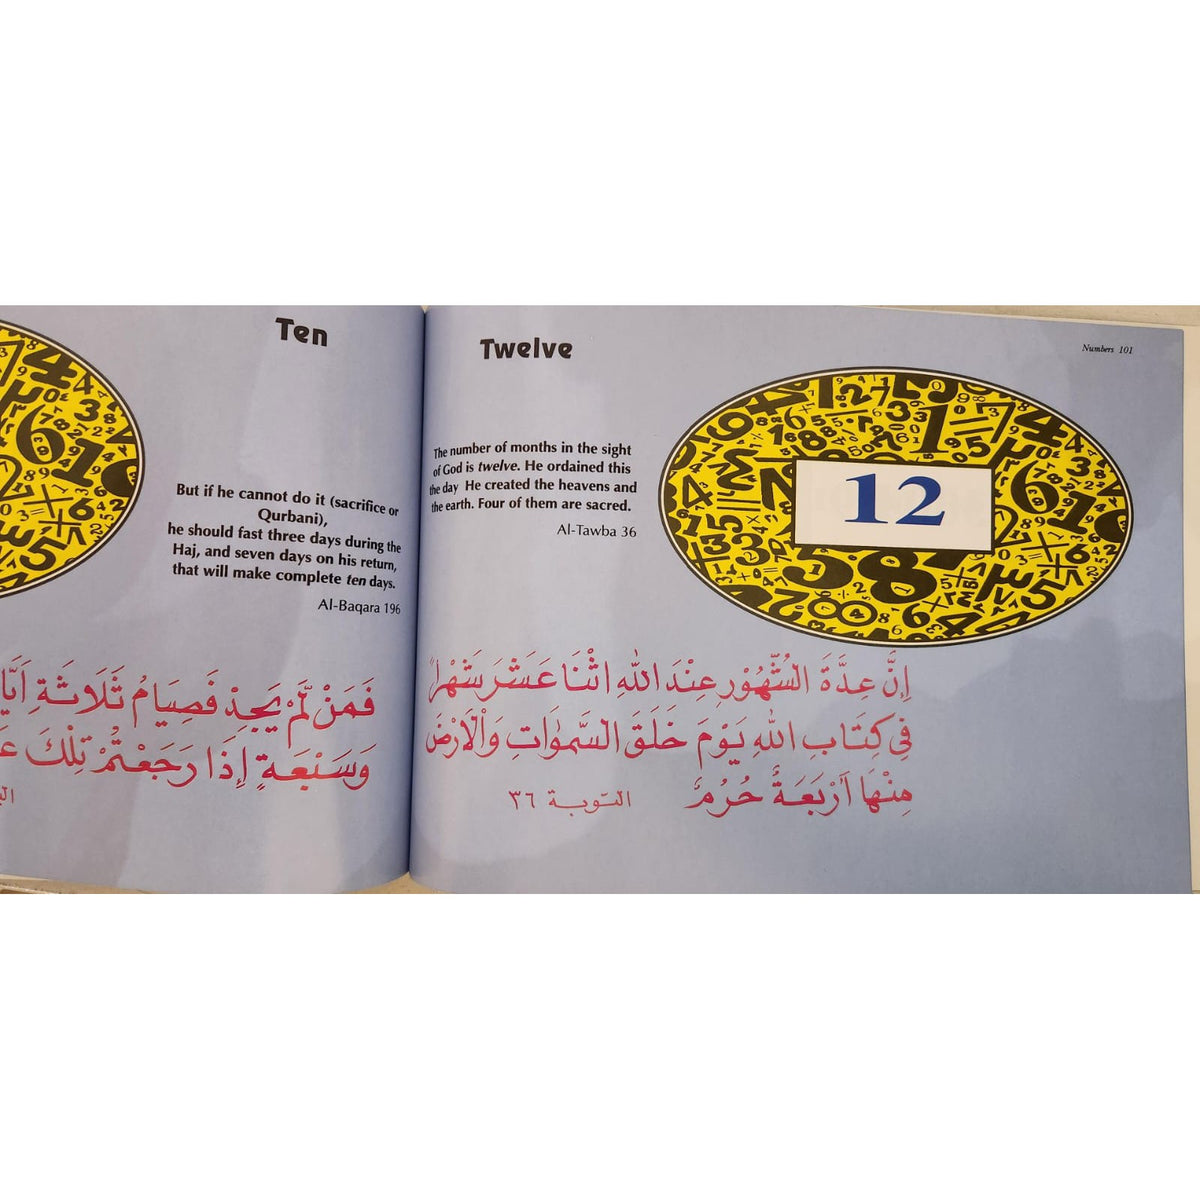 Ten
But if he cannot do it (sacrifice or
Qurbani),
he should fast three days during the
Haj, and seven days on his return,
that will make complete ten days.
Al-Baqara 196
فَمَنْ لَمْ يَجِدْ فَصِيَامُ ثَلَاثَةِ
وَسَبْعَةٍ إِذَا رَجَعْتُمْ تِلْكَ
Twelve
Numbers 101
The number of months in the sight
of God is twelve. He ordained this
the day He created the heavens and
the earth. Four of them are sacred.
Al-Tawba 36
12
إِنَّ عِدَّةَ الشُّهُوْرِ عِنْدَ اللهِ اثْنَا عَشَرَ شَهْرًا
فِي كِتَابِ اللهِ يَوْمَ خَلَقَ السَّمٰوَاتِ وَالْأَرْضَ
مِنْهَا أَرْبَعَةٌ حُرُمٌ
التوبة ٣٦